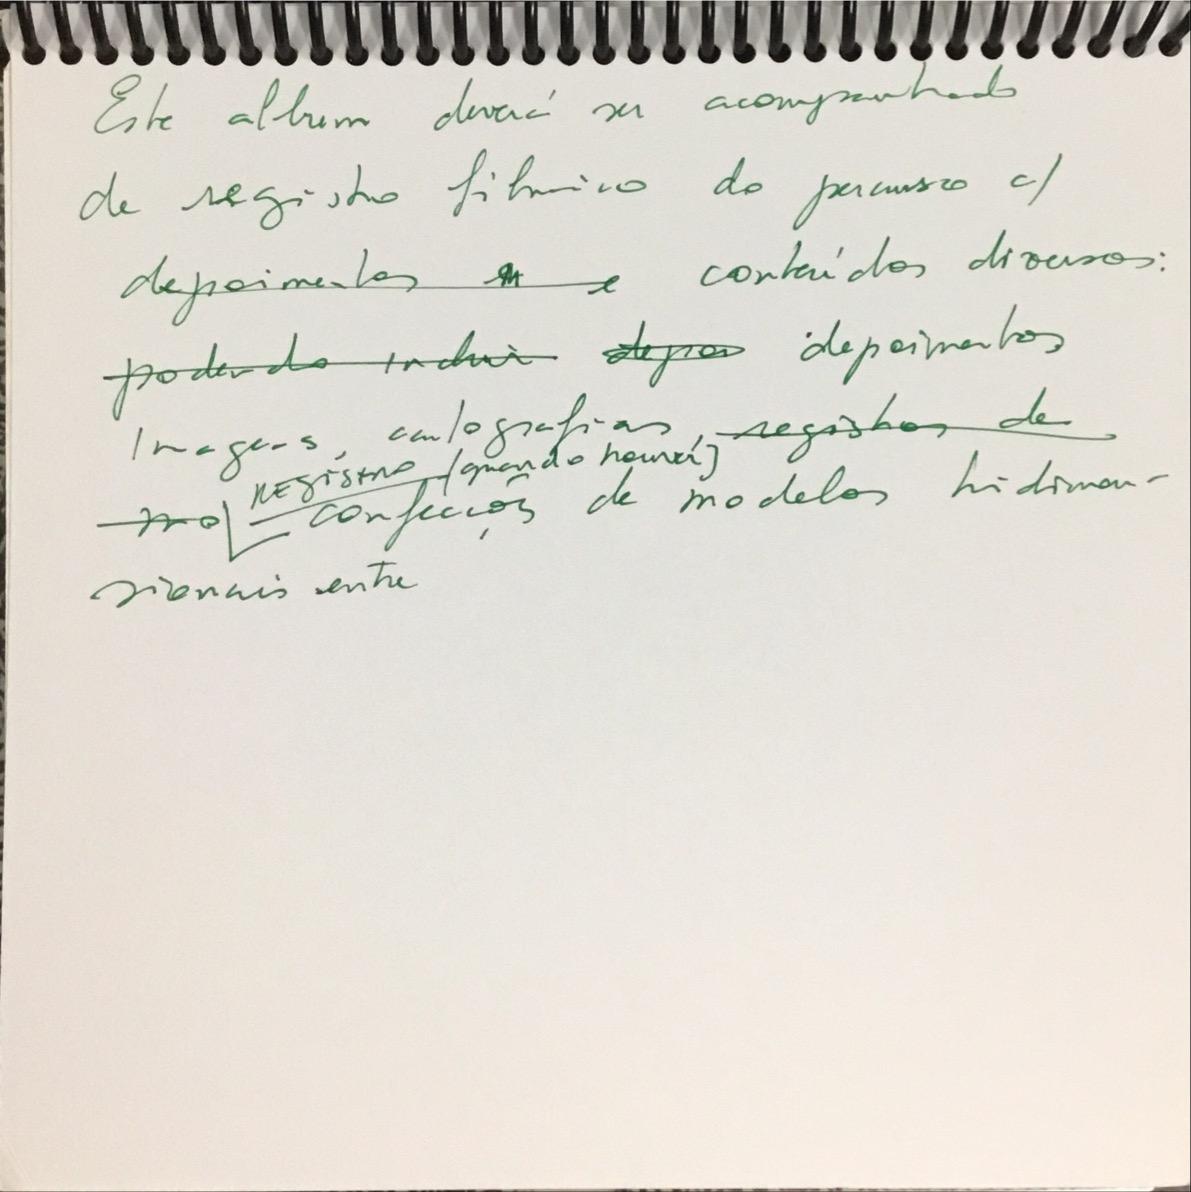 Este album deverá ser acompanhado
de registro fílmico do percurso c/
depoimentos e conteúdos diversos:
podendo incluir depoi depoimentos
Imagens, cartografias, registros de
REGISTRO (quando houver)
mo confecções de modelos tridimen-
sionais entre